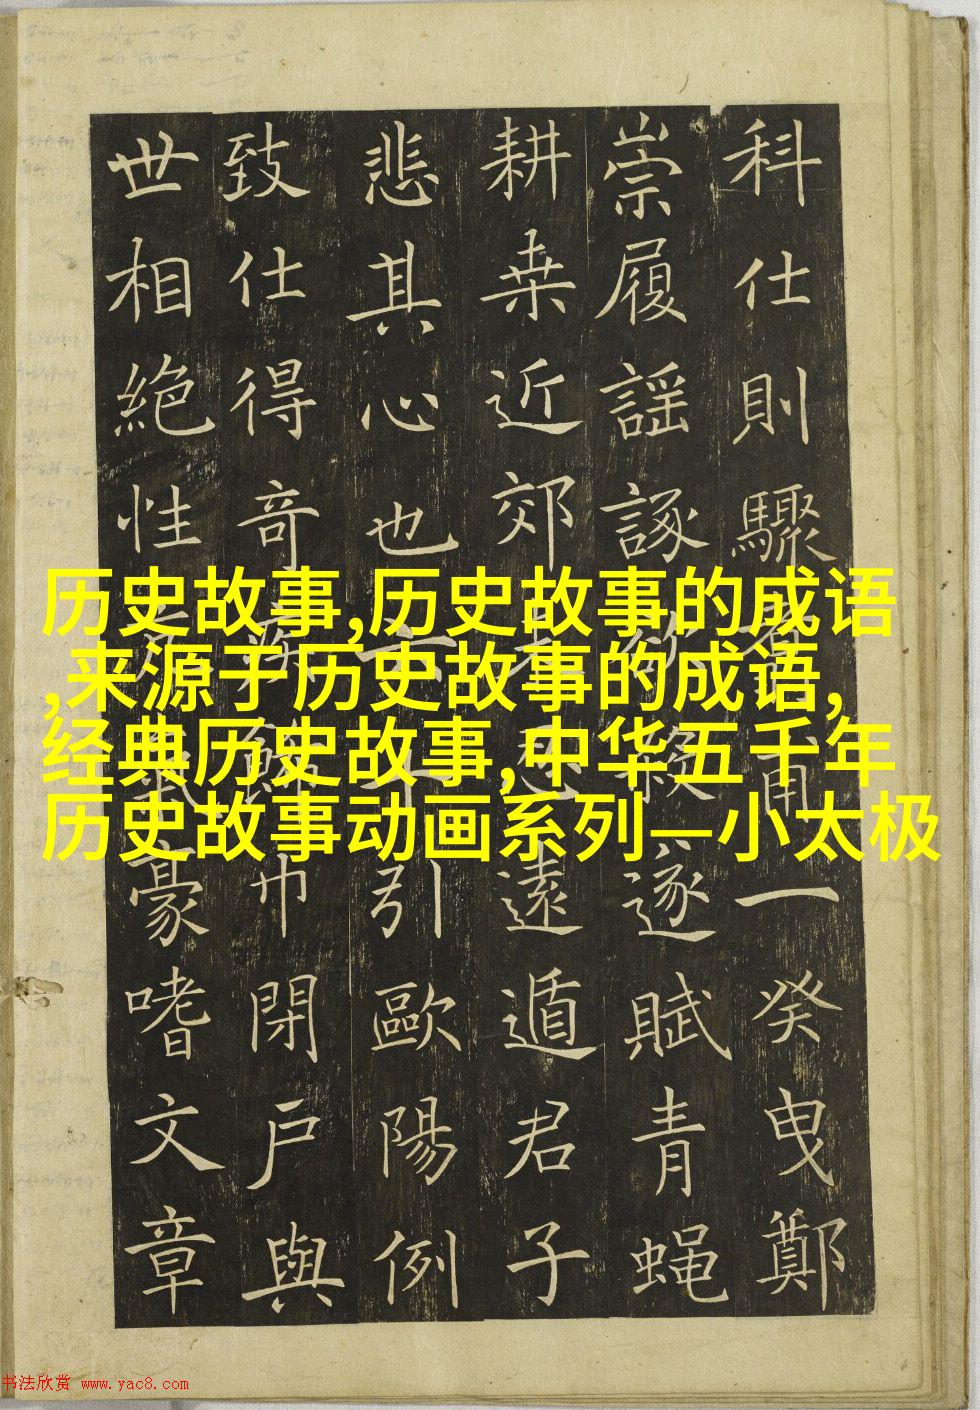 科仕則驟一癸曳鄭
崇履謡諑逐賦青蝇
耕桒近郊遠遁君子
悲其心也引歐陽例
致仕得奇巾閉戸與
世相絶性豪嗜文章
历史故事,历史故事的成语
,来源于历史故事的成语,
经典历史故事,中华五千年
历史故事动画系列—小太极
书法欣赏 www.yac8.com